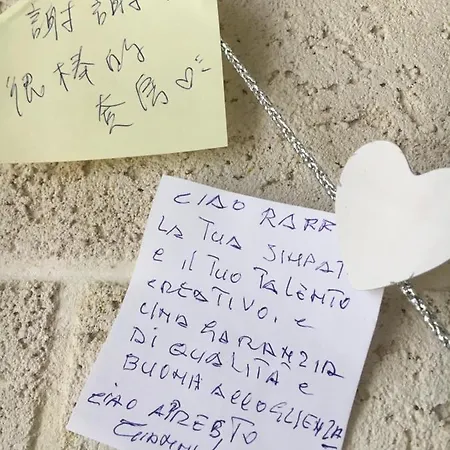 謝謝
很棒的
套房♡
CIAO RARR
LA TUA SIMPAT
E IL TUO TALENTO
CREATIVO, E
UNA GARANZIA
DI QUALITÀ E
BUONA ACCOGLIENZA
CIAO A PRESTO